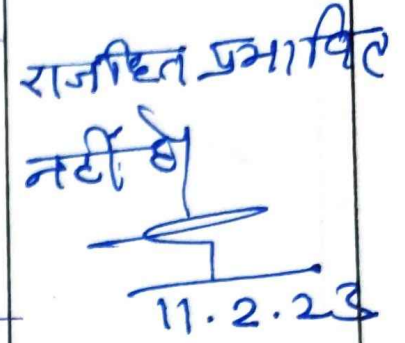 राजहित प्रभावित
नहीं हो
11.2.23